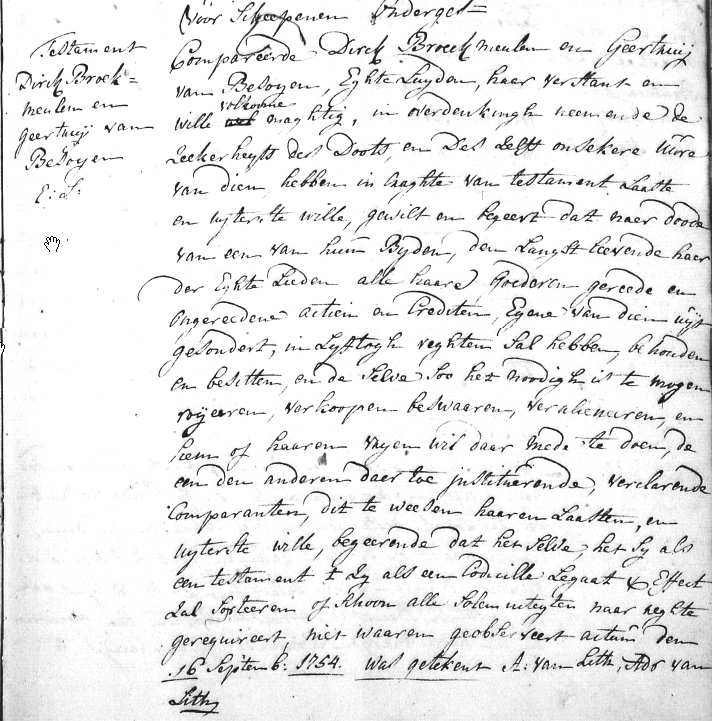 Voor Scheepenen Onderget=
Testament
Dirck Broek=
meulen en
geertruij van
Besoyen
E: L:
Compareerde Dirck Broeckmeulen en Geertruij
van Besoyen, Eghte Luyden, haer verstant en
volkome
wille maghtig, in overdenkingh neemende de
Zeekerheyts des Doots, en des selfs onsekere uure
van dien, hebben in craghte van testament Laaste
en uyterste wille, gewilt en begeert dat naer doode
van een van hun Byden, den Langst leevende haer
der Eghte Lieden alle haare goederen gereede en
ongereedene actien en Crediten, Egene van dien uyt
gesondert, in Lyftogh reghten sal hebben, behouden
en besitten, en de selve soo het noodigh is te mogen
royeeren, verkoopen beswaaren, veralieneeren, en
heem of haaren vryen wil daar mede te doen, de
een den anderen daer toe institueerende, verclarende
Comparanten, dit te weesen haaren Laasten, en
uyterste wille, begeerende dat het selve, het sy als
een testament t zy als een Codicille Legaat & Effect
Zal sorteeren of schoon alle solemniteyten naar reghte
gerequireert, niet waaren geobserveert actum den
16 Septemb: 1754. was getekent A: van Lith, Adr van
Lith